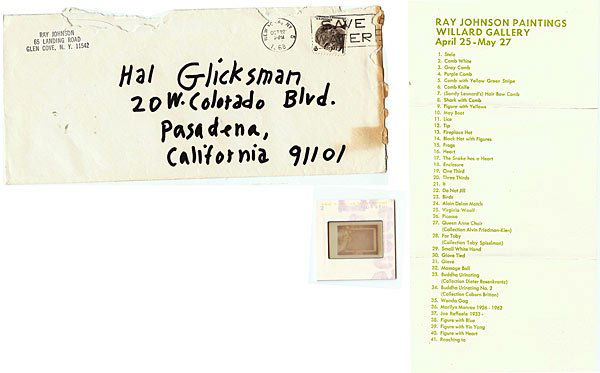 RAY JOHNSON
65 LANDING ROAD
GLEN COVE, N. Y. 11542
SAVE
Hal Glicksman
20 W. Colorado Blvd.
Pasadena,
California 91101
RAY JOHNSON PAINTINGS
WILLARD GALLERY
April 25 - May 27
1. Stele
2. Comb White
3. Gray Comb
4. Purple Comb
5. Comb with Yellow Green Stripe
6. Comb Knife
7. (Sandy Leonard's) Hair Bow Comb
8. Shark with Comb
9. Figure with Yellows
10. May Boat
11. Lice
12. Tip
13. Fireplace Hat
14. Black Hat with Figures
15. Frogs
16. Heart
17. The Snake has a Heart
18. Enclosure
19. One Third
20. Three Thirds
21. It
22. Do Not Jill
23. Birds
24. Alain Delon Match
25. Virginia Woolf
26. Picasso
27. Queen Anne Chair
(Collection Alvin Friedman-Kien)
28. For Toby
(Collection Toby Spiselman)
29. Small White Hand
30. Glove Tied
31. Glove
32. Massage Ball
33. Buddha Urinating
(Collection Dieter Rosenkrantz)
34. Buddha Urinating No. 2
(Collection Coburn Britton)
35. Wanda Gag
36. Marilyn Monroe 1926 - 1962
37. Joe Raffaele 1933 -
38. Figure with Blue
39. Figure with Yin Yang
40. Figure with Heart
41. Reaching to